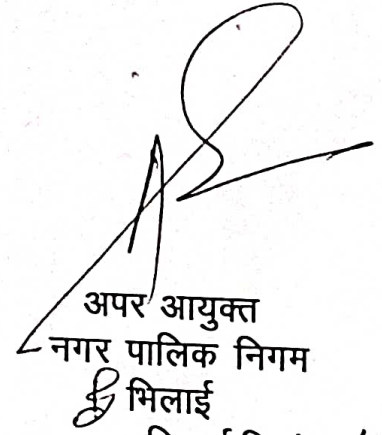 अपर आयुक्त
नगर पालिक निगम
भिलाई